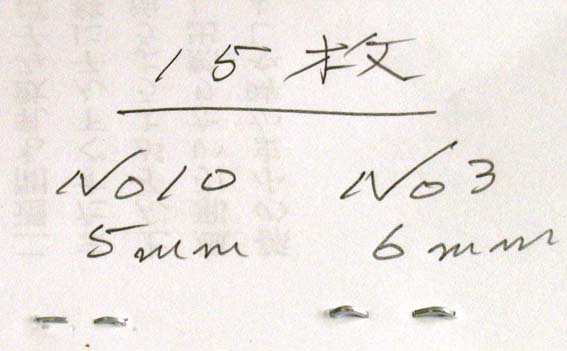 15枚
No10 No3
5mm 6mm